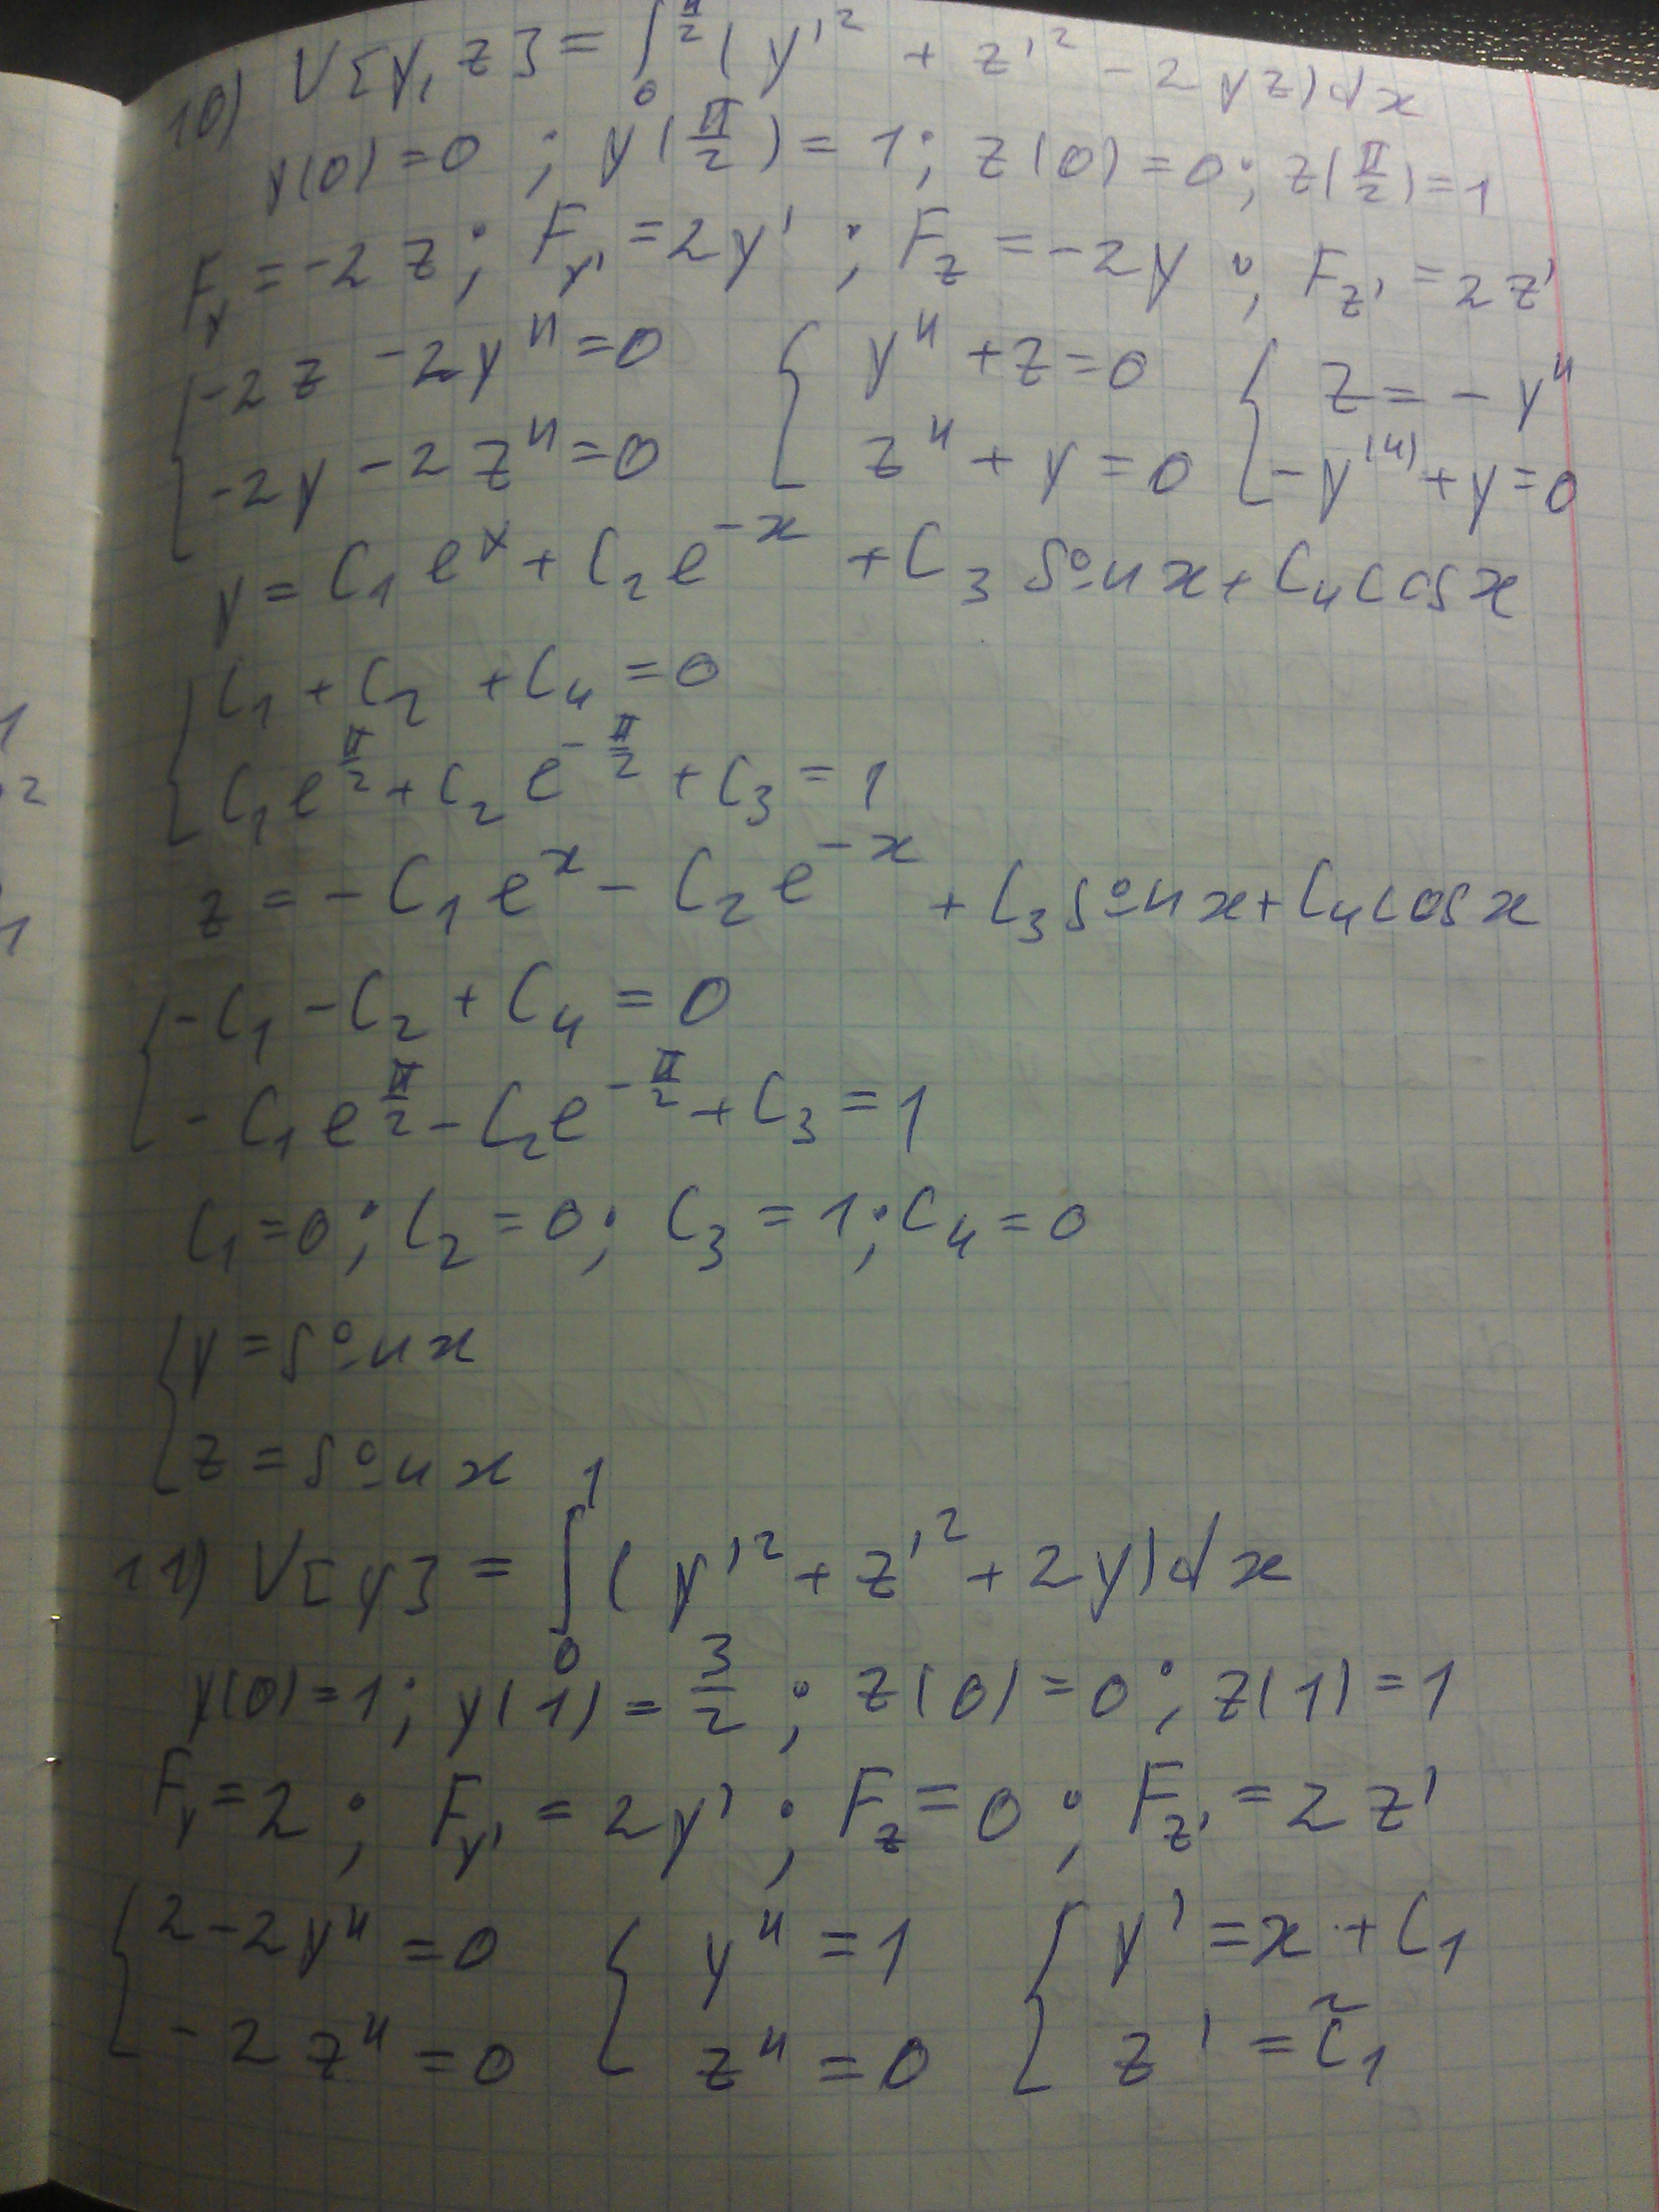 10) V[y, z] = ∫₀^{π/2} (y'² + z'² - 2yz)dx
y(0) = 0 ; y(π/2) = 1 ; z(0) = 0 ; z(π/2) = 1
F_y = -2z ; F_y' = 2y' ; F_z = -2y ; F_z' = 2z'
{ -2z - 2y'' = 0 { y'' + z = 0 { z = -y''
{ -2y - 2z'' = 0 { z'' + y = 0 { -y^(4) + y = 0
y = C₁e^x + C₂e^{-x} + C₃ sin x + C₄ cos x
{ C₁ + C₂ + C₄ = 0
{ C₁e^{π/2} + C₂e^{-π/2} + C₃ = 1
z = -C₁e^x - C₂e^{-x} + C₃ sin x + C₄ cos x
{ -C₁ - C₂ + C₄ = 0
{ -C₁e^{π/2} - C₂e^{-π/2} + C₃ = 1
C₁ = 0 ; C₂ = 0 ; C₃ = 1 ; C₄ = 0
{ y = sin x
{ z = sin x
11) V[y] = ∫₀^1 (y'² + z'² + 2y)dx
y(0) = 1 ; y(1) = 3/2 ; z(0) = 0 ; z(1) = 1
F_y = 2 ; F_y' = 2y' ; F_z = 0 ; F_z' = 2z'
{ 2 - 2y'' = 0 { y'' = 1 { y' = x + C₁
{ -2z'' = 0 { z'' = 0 { z' = C̃₁